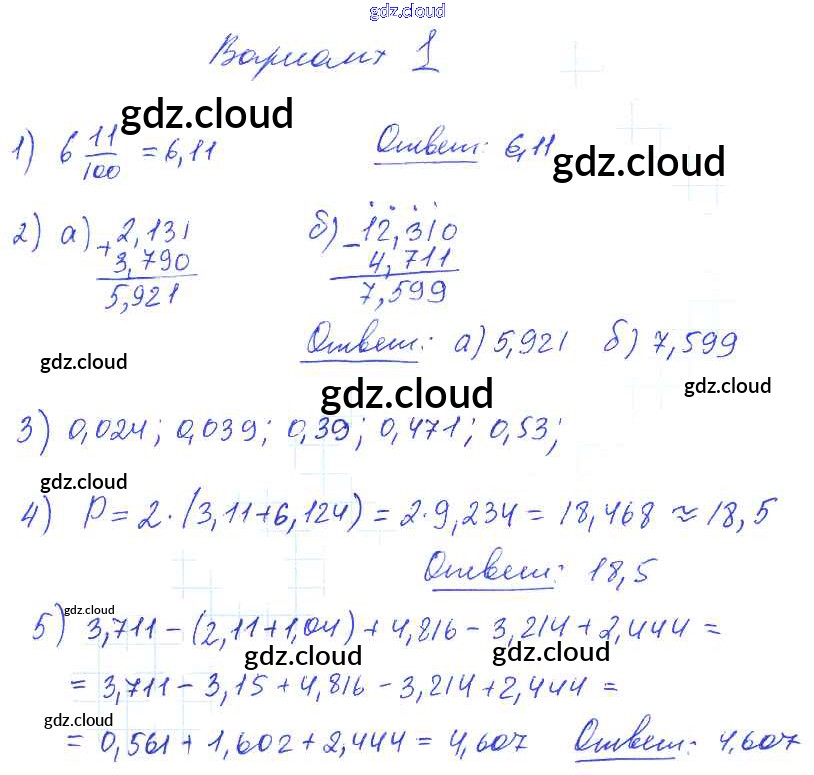 gdz.cloud
Вариант 1
gdz.cloud
1) 6 11/100 = 6,11 Ответ: 6,11
gdz.cloud
2) а) + 2,131 б) - 12,310
3,790 4,711
5,921 7,599
Ответ: а) 5,921 б) 7,599
gdz.cloud
gdz.cloud gdz.cloud
3) 0,024; 0,039; 0,39; 0,471; 0,53;
gdz.cloud
4) P = 2·(3,11+6,124) = 2·9,234 = 18,468 ≈ 18,5
Ответ: 18,5
gdz.cloud
5) 3,711 - (2,11+1,04) + 4,816 - 3,214 + 2,444 =
gdz.cloud gdz.cloud
= 3,711 - 3,15 + 4,816 - 3,214 + 2,444 =
gdz.cloud
= 0,561 + 1,602 + 2,444 = 4,607 Ответ: 4,607